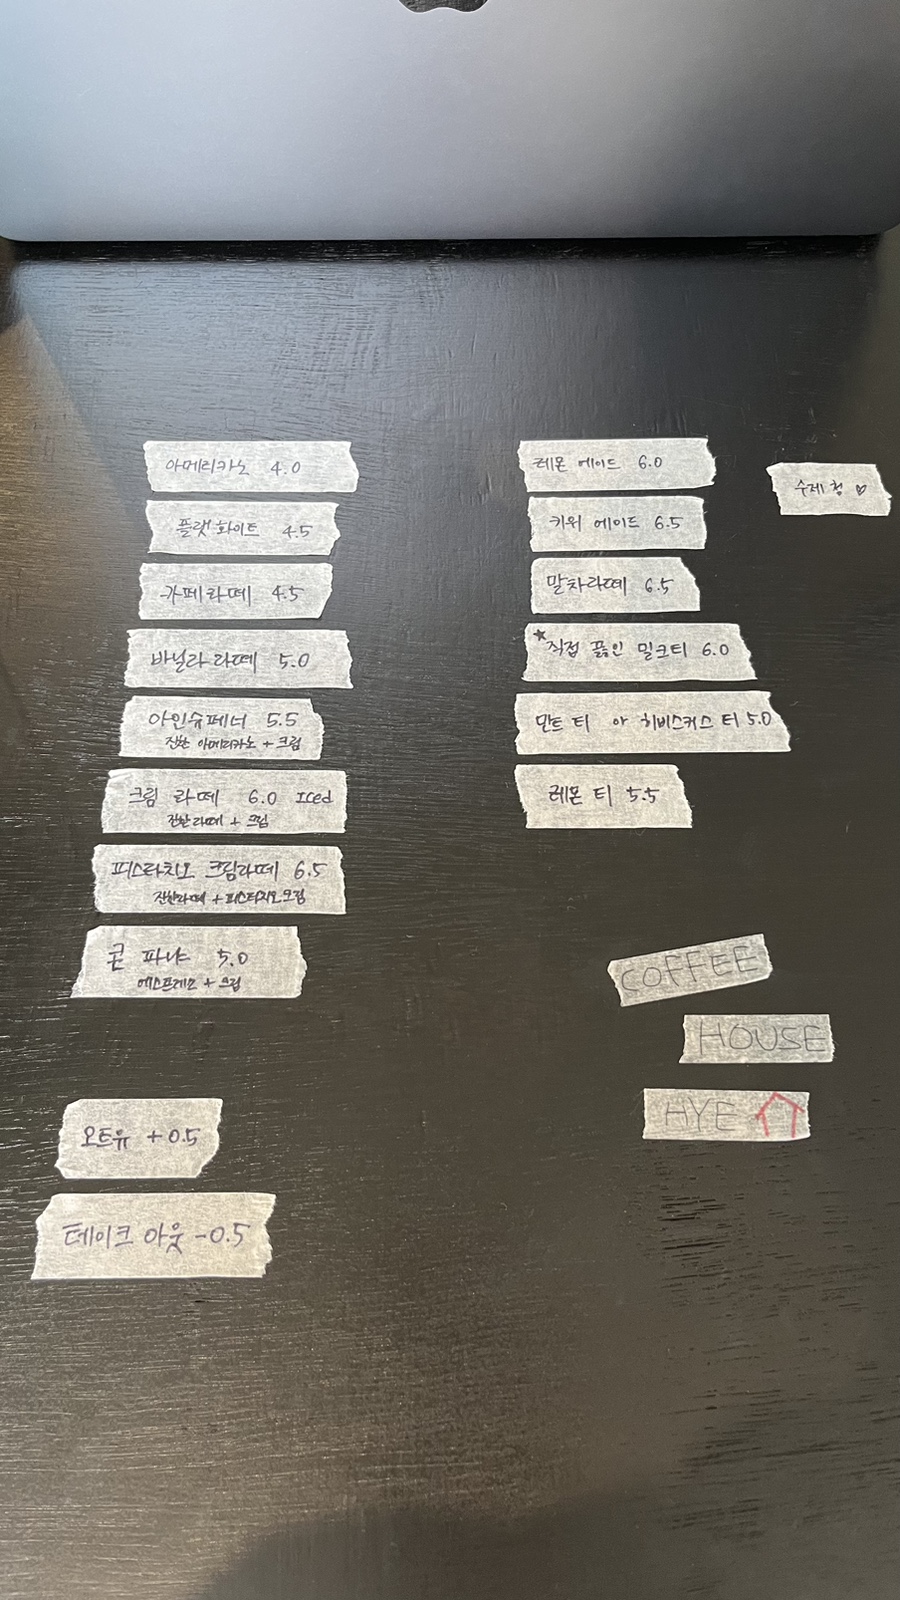 아메리카노 4.0
플랫 화이트 4.5
카페라떼 4.5
바닐라 라떼 5.0
아인슈페너 5.5
진한 아메리카노 + 크림
크림 라떼 6.0 Iced
진한라떼 + 크림
피스타치오 크림라떼 6.5
진한라떼 + 피스타치오크림
콘 파냐 5.0
에스프레소 + 크림
오트유 +0.5
테이크 아웃 -0.5
레몬 에이드 6.0
수제청 ♡
키위 에이드 6.5
말차라떼 6.5
★직접 끓인 밀크티 6.0
민트 티 or 히비스커스 티 5.0
레몬 티 5.5
COFFEE
HOUSE
HYE